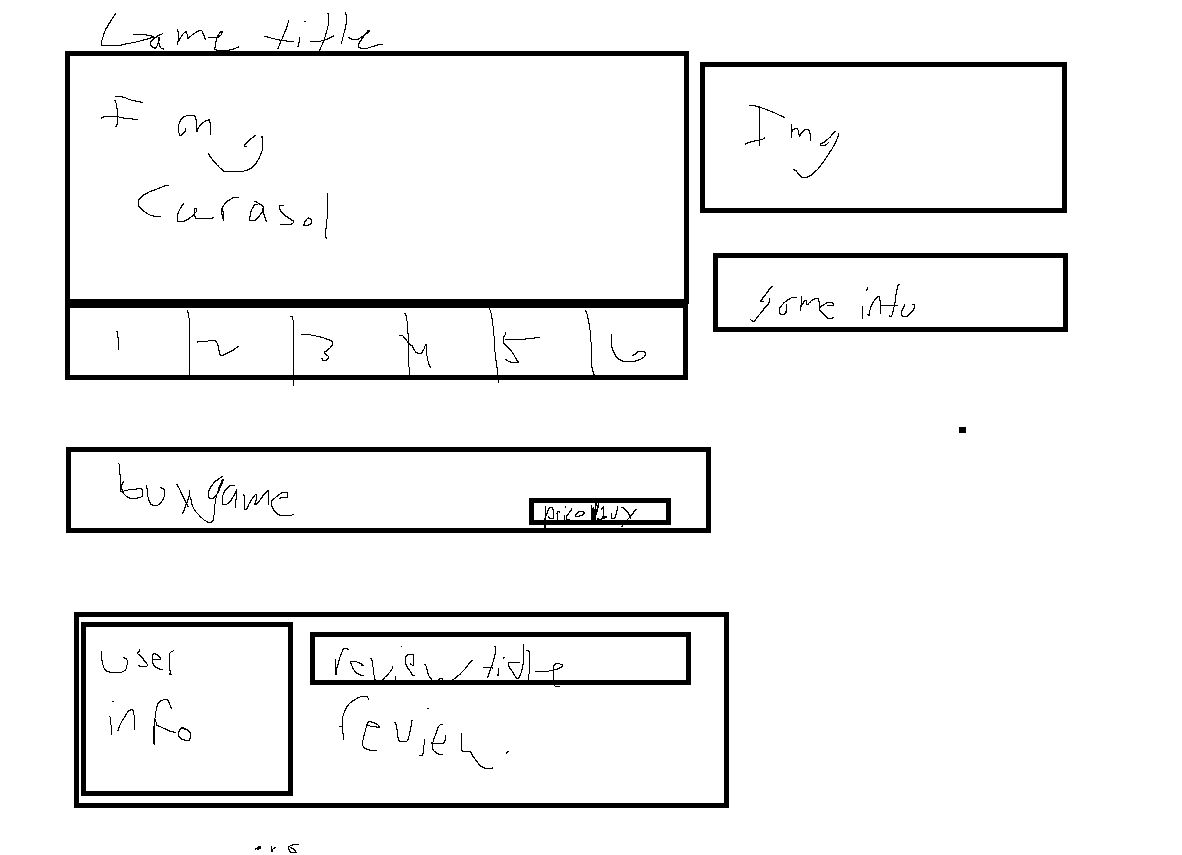 Game title
Img
Carasol
Img
some info
1 2 3 4 5 6
buy game
price buy
user
info
review title
review.